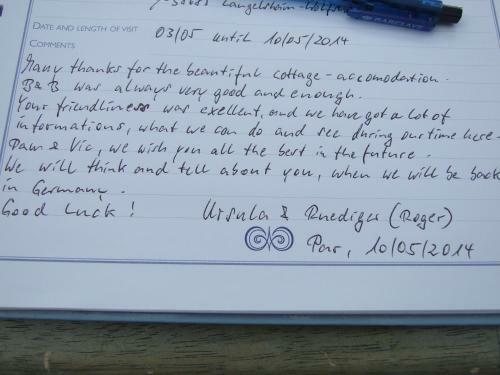 Langelsheim-Wolfshagen
DATE AND LENGTH OF VISIT 03/05 until 10/05/2014
COMMENTS
Many thanks for the beautiful cottage-accomodation.
B&B was always very good and enough.
Your friendliness was exellent, and we have got a lot of
informations, what we can do and see during our time here-
Pam & Vic, we wish you all the best in the future.
We will think and tell about you, when we will be back
in Germany.
Good Luck!
Ursula & Ruediger (Roger)
Par, 10/05/2014
BARCLAYS